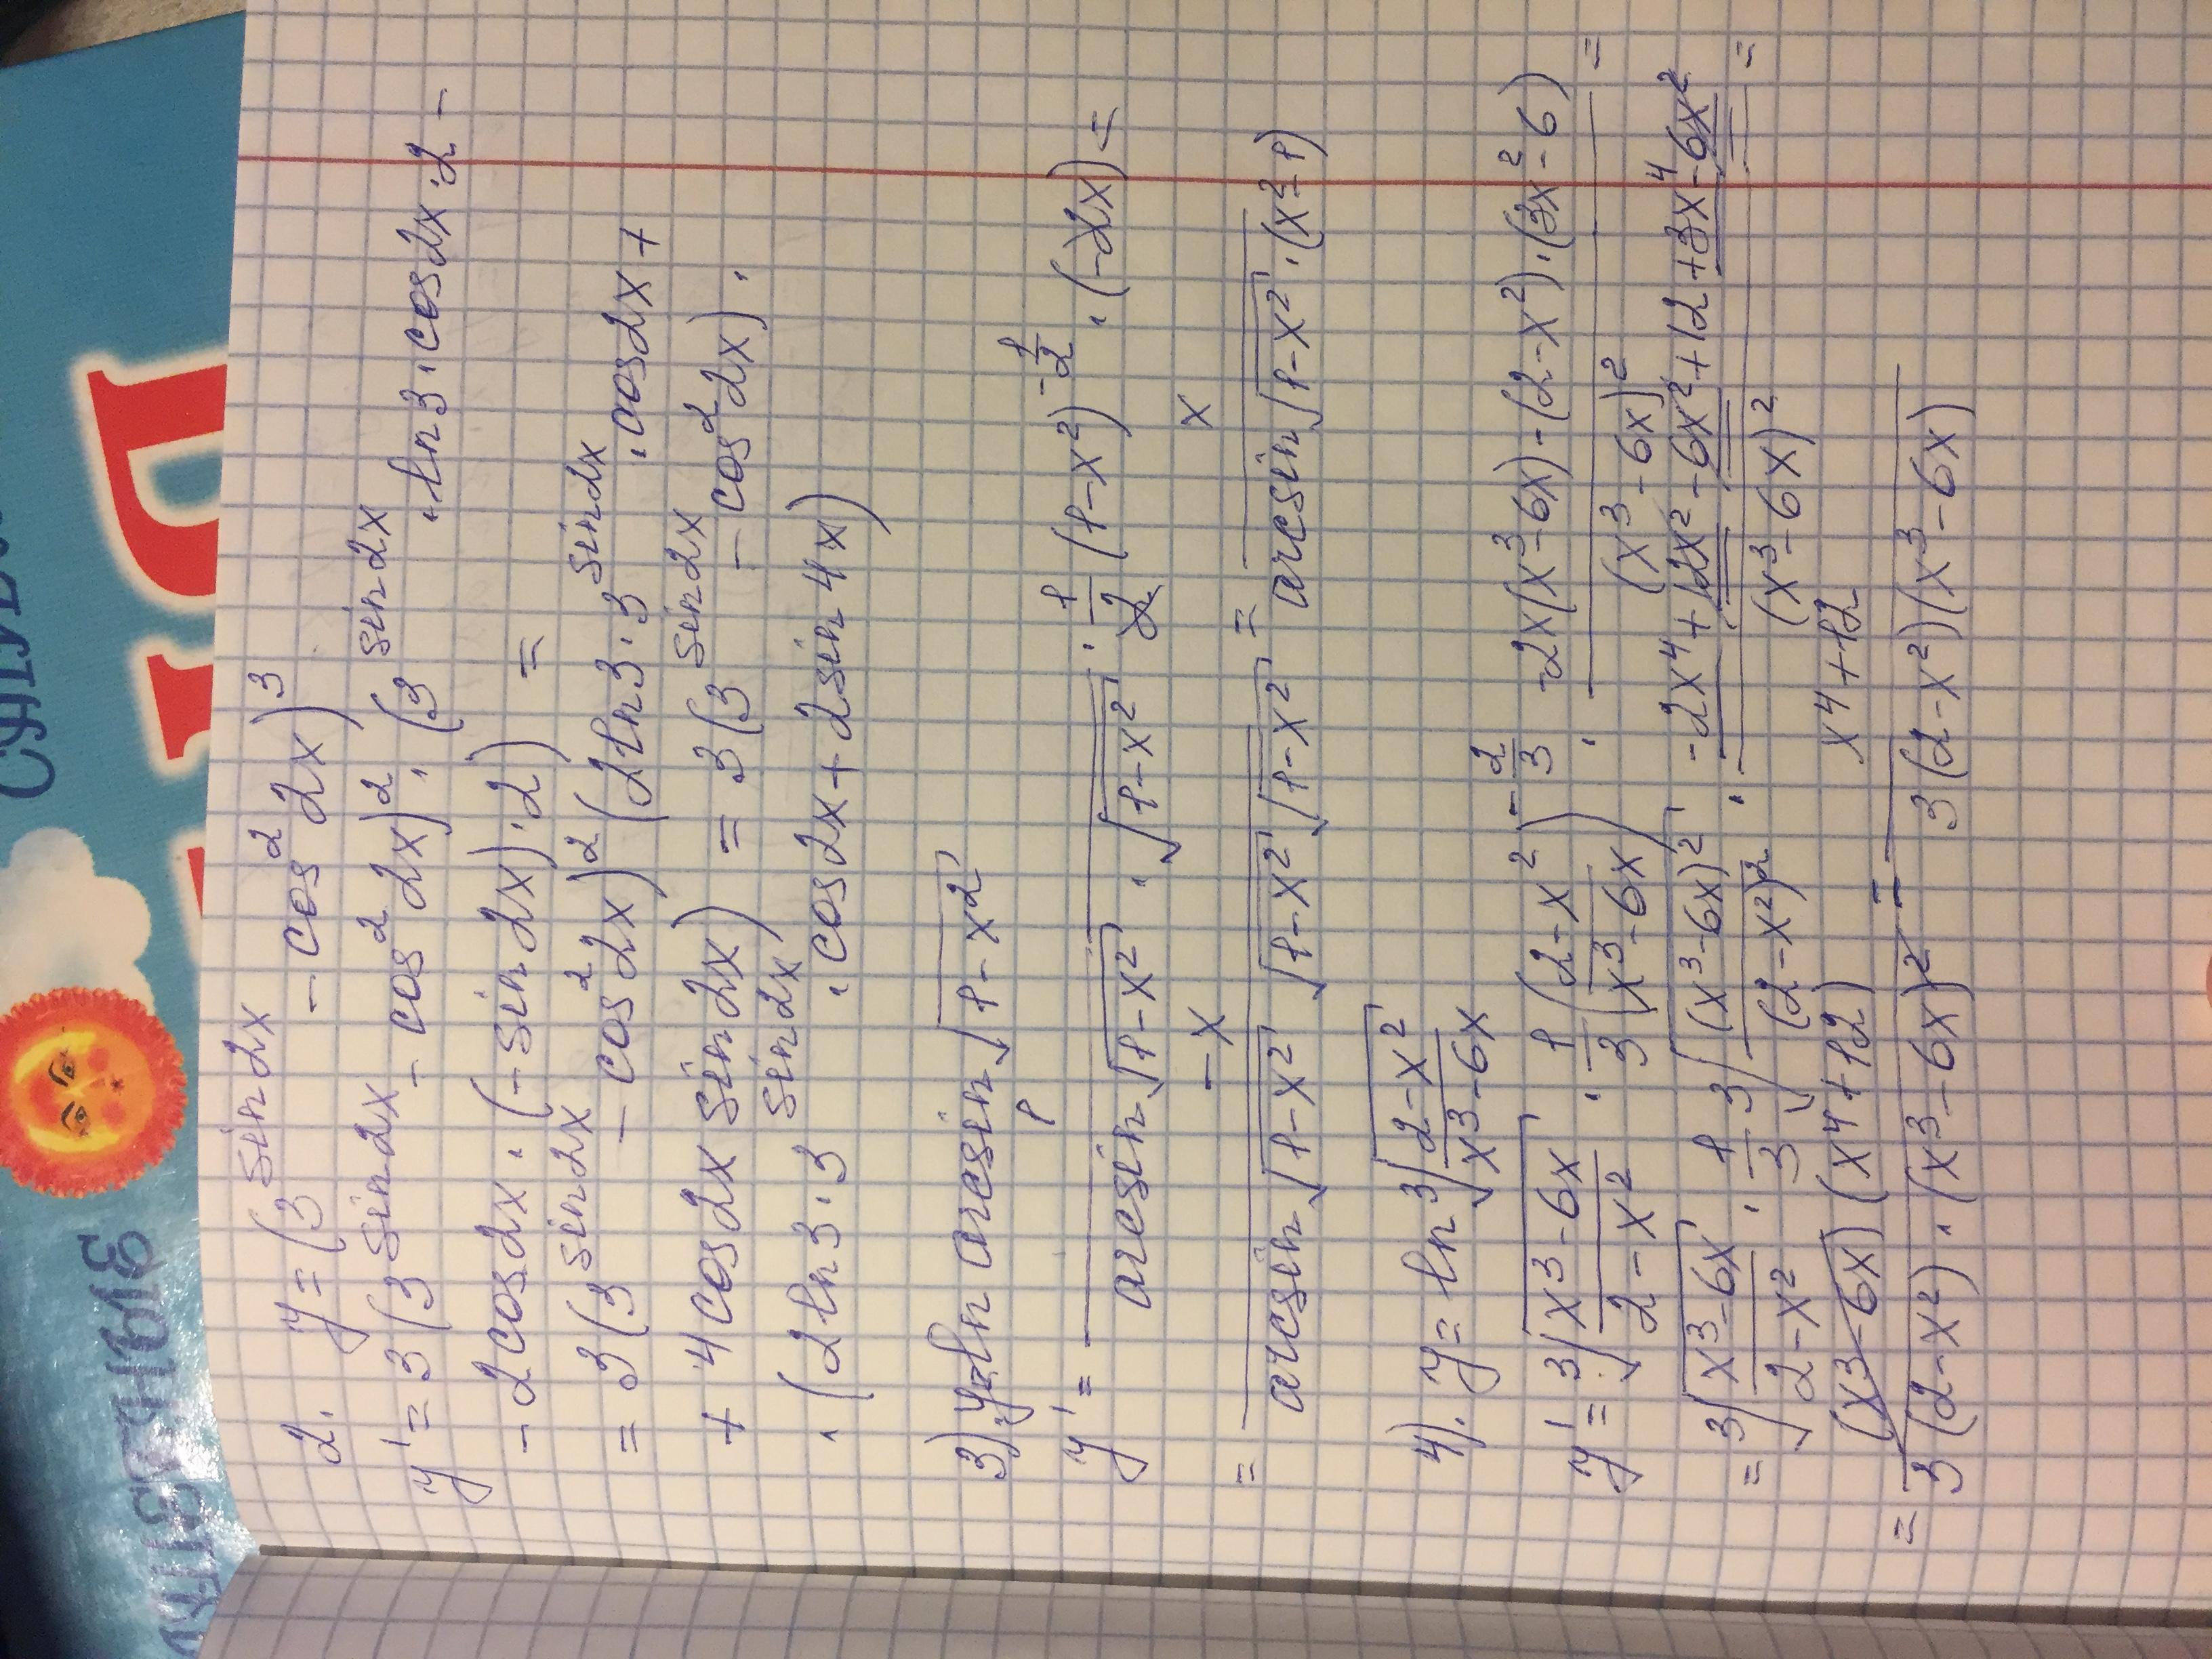 2. y = (3^{sin2x} - cos^2 2x)^3
y' = 3(3^{sin2x} - cos^2 2x)^2 · (3^{sin2x} · ln3 · cos2x · 2 -
- 2cos2x · (-sin2x) · 2) =
= 3(3^{sin2x} - cos^2 2x)^2 (2ln3 · 3^{sin2x} · cos2x +
+ 4cos2x sin2x) = 3(3^{sin2x} - cos^2 2x) ·
· (2ln3 · 3^{sin2x} · cos2x + 2sin4x)
3) y = ln arcsin √(1-x^2)
y' = 1/(arcsin √(1-x^2) · √(1-x^2)) · 1/2 (1-x^2)^{-1/2} · (-2x) =
= -x/(arcsin √(1-x^2) √(1-x^2) √(1-x^2)) = x/(arcsin √(1-x^2) · (x^2-1))
4). y = ln ∛((2-x^2)/(x^3-6x))
y' = ∛((x^3-6x)/(2-x^2)) · 1/3 ((2-x^2)/(x^3-6x))^{-2/3} · (-2x(x^3-6x)-(2-x^2)·(3x^2-6))/((x^3-6x)^2) =
= ∛((x^3-6x)/(2-x^2)) · 1/3 ∛((x^3-6x)^2/(2-x^2)^2) · (-2x^4+12x^2-6x^2+12+3x^4-6x^2)/((x^3-6x)^2) =
= ((x^3-6x)(x^4+12))/(3(2-x^2)·(x^3-6x)^2) = (x^4+12)/(3(2-x^2)(x^3-6x))